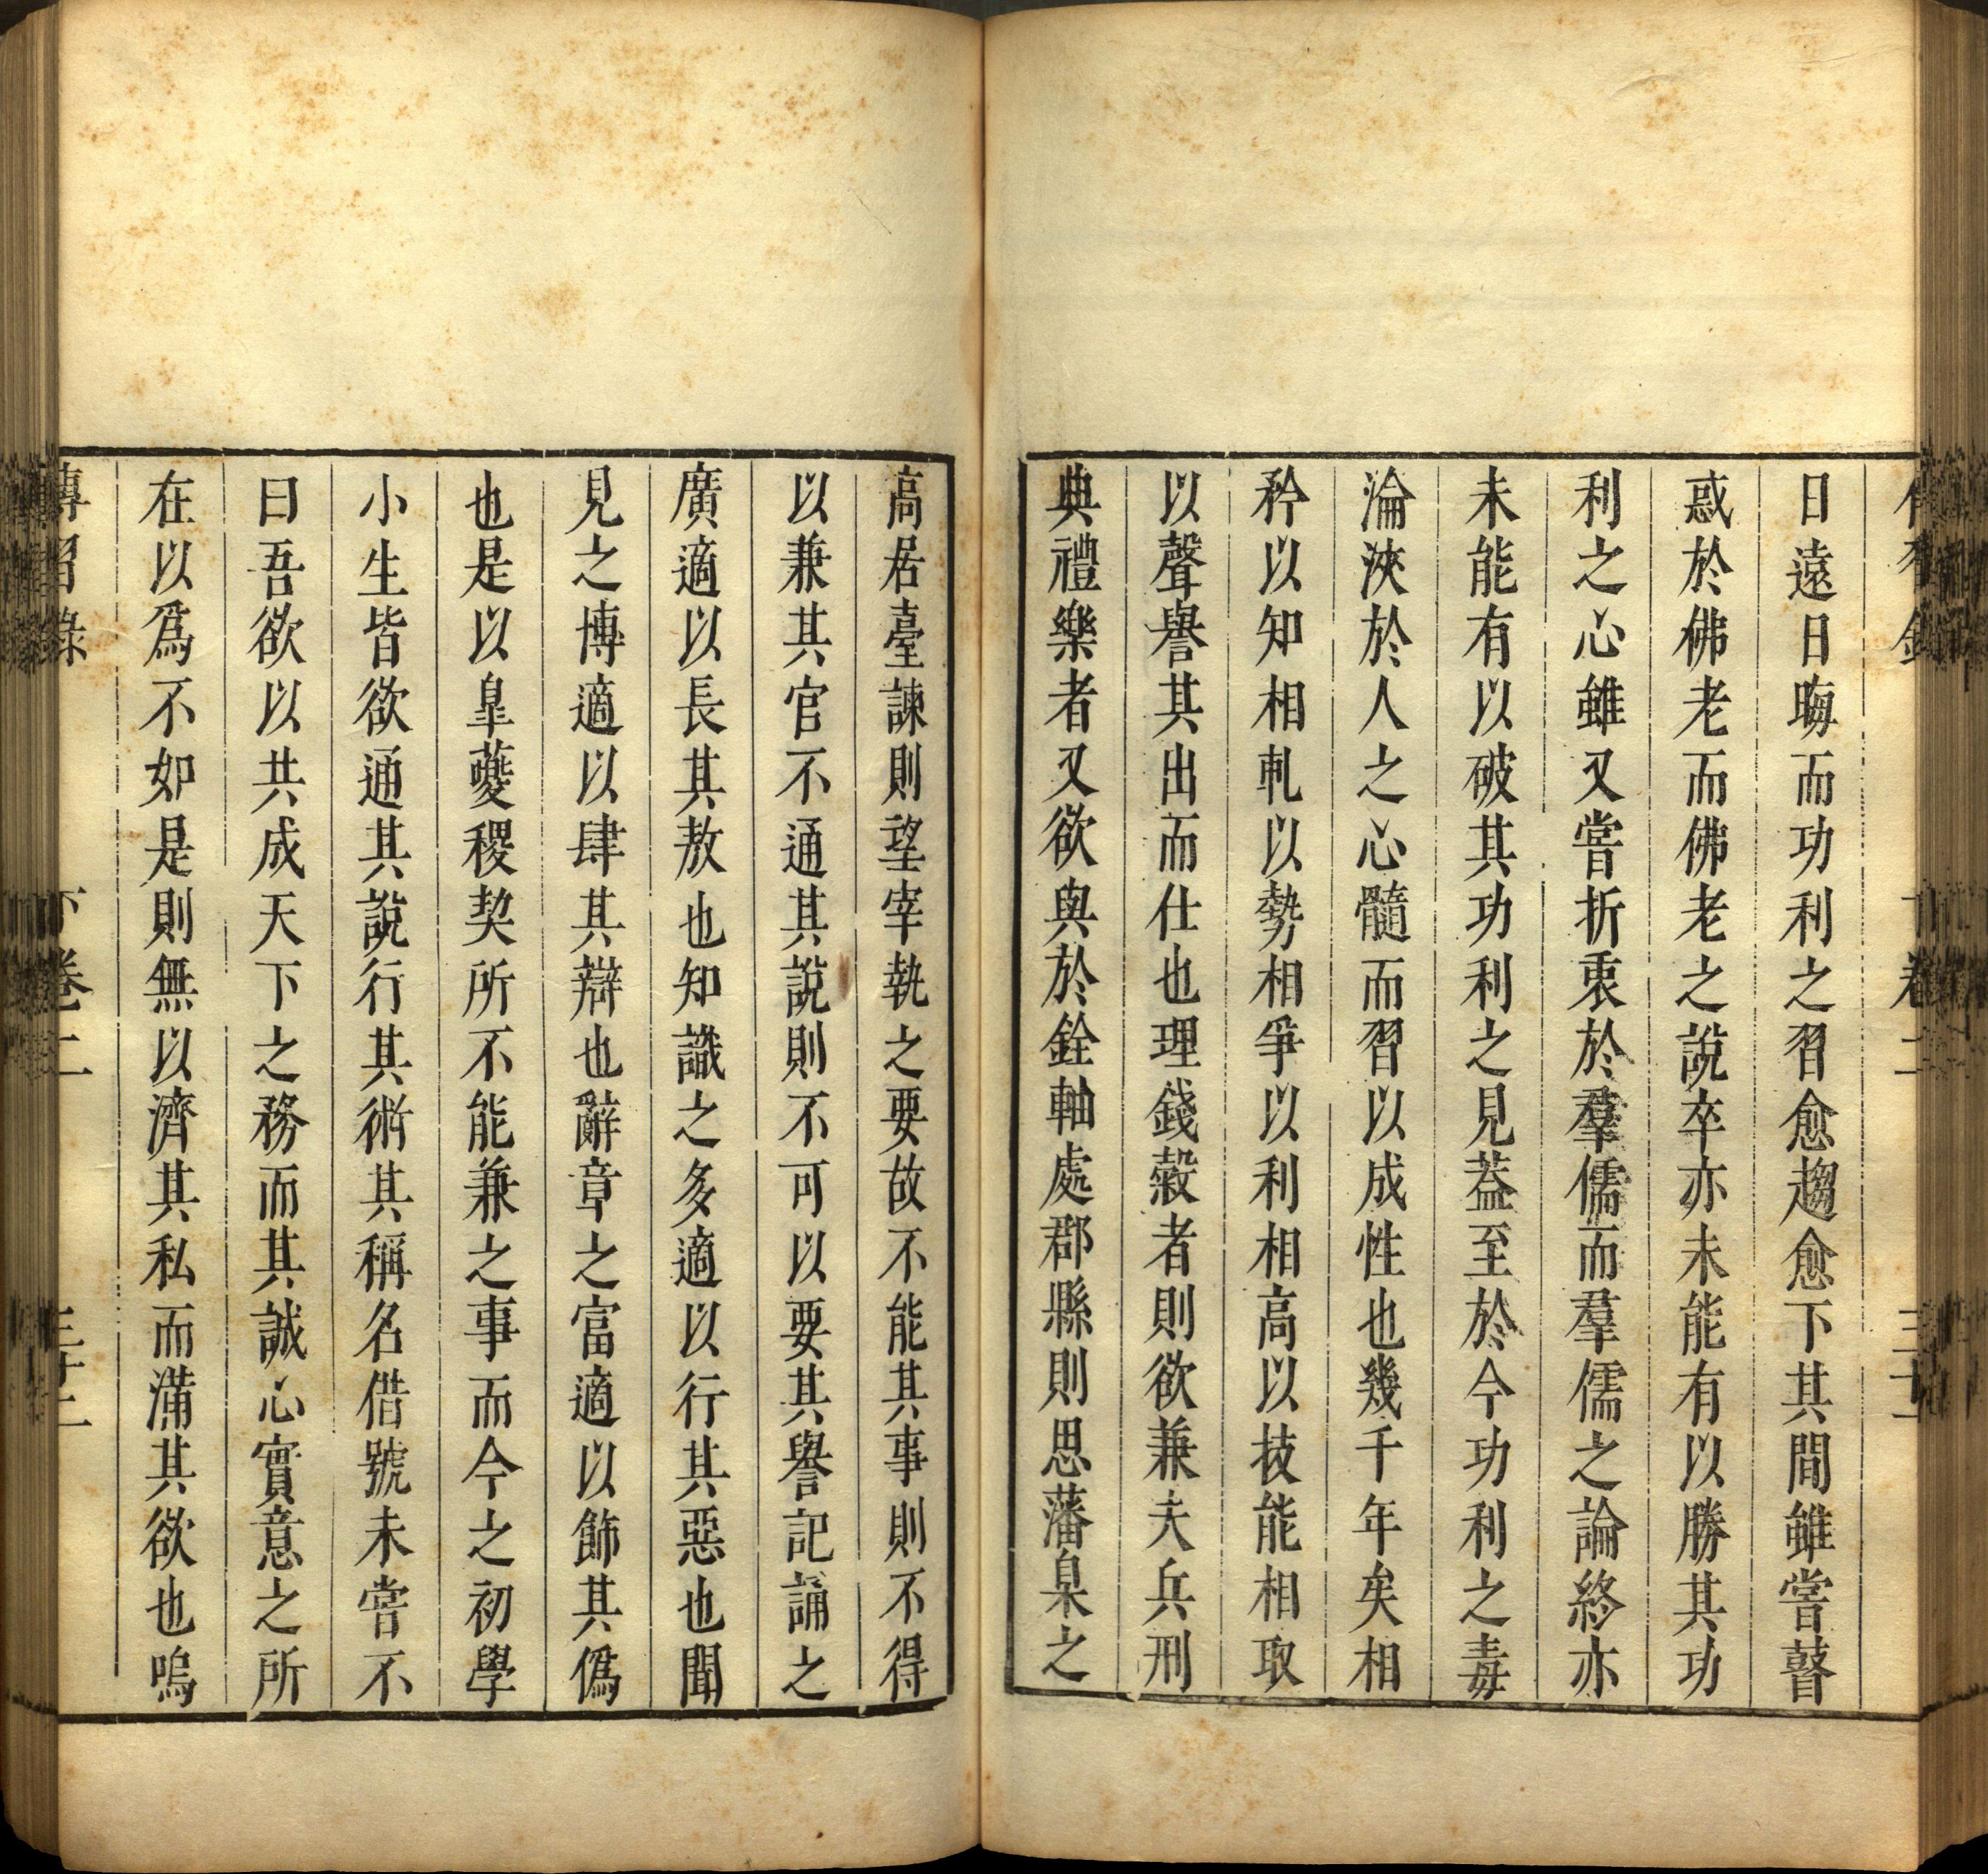 日遠日晦而功利之習愈趨愈下其間雖嘗瞽
惑於佛老而佛老之說卒亦未能有以勝其功
利之心雖又嘗折衷於羣儒而羣儒之論終亦
未能有以破其功利之見葢至於今功利之毒
淪浹於人之心髓而習以成性也幾千年矣相
矜以知相軋以勢相爭以利相高以技能相取
以聲譽其出而仕也理錢穀者則欲兼夫兵刑
典禮樂者又欲與於銓軸處郡縣則思藩臬之
高居臺諫則望宰執之要故不能其事則不得
以兼其官不通其說則不可以要其譽記誦之
廣適以長其敖也知識之多適以行其惡也聞
見之博適以肆其辯也辭章之富適以飾其僞
也是以臯夔稷契所不能兼之事而今之初學
小生皆欲通其說行其術其稱名借號未嘗不
曰吾欲以共成天下之務而其誠心實意之所
在以爲不如是則無以濟其私而滿其欲也嗚
傳習錄 下卷二